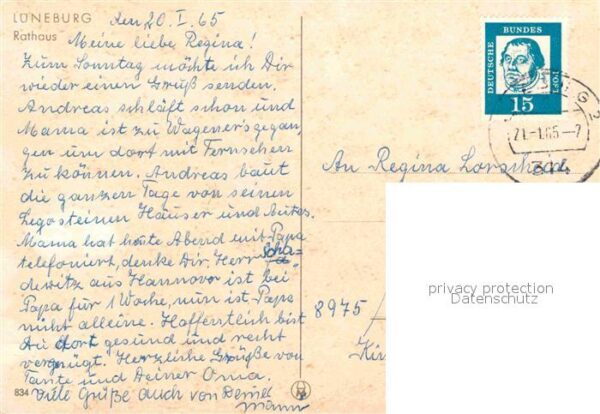 LÜNEBURG
Rathaus
den 20. I. 65
Meine liebe Regina!
Zum Sonntag möchte ich Dir
wieder einen Gruß senden.
Andreas schläft schon und
Mama ist zu Wageners gegan
gen um dort mit Fernsehen
zu können. Andreas baut
die ganzen Tage von seinen
Legosteinen Häuser und Autos.
Mama hat heute Abend mit Papa
telefoniert, denke Dir, Herr Scha=
dewitz aus Hannover ist bei
Papa für 1 Woche, nun ist Papa
nicht alleine. Hoffentlich bist
Du dort gesund und recht
vergnügt. Herzliche Grüße von
Tante und Deiner Oma.
Viele Grüße auch von
834
DEUTSCHE BUNDES POST
15
21.-1.65-7
314
An Regina
8975
privacy protection
Datenschutz